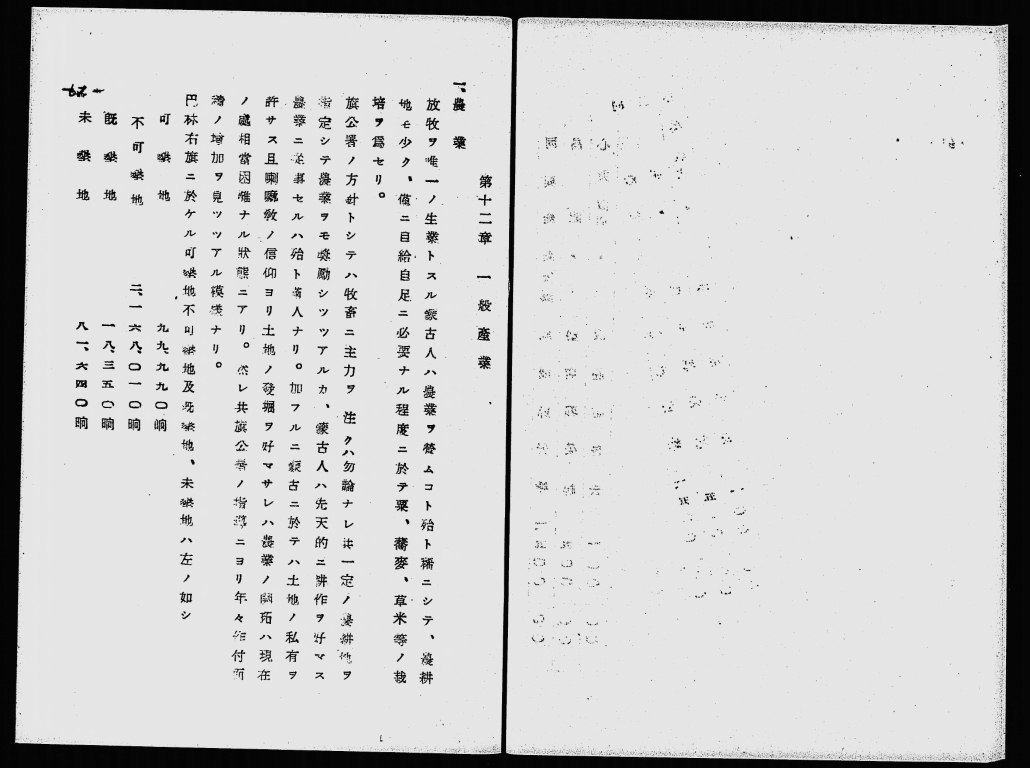 第十二章　一般産業
一、農業
放牧ヲ唯一ノ生業トスル蒙古人ハ農業ヲ營ムコト殆ト稀ニシテ、農耕
地モ少ク、僅ニ自給自足ニ必要ナル程度ニ於テ粟、蕎麥、草米等ノ栽
培ヲ爲セリ。
旗公署ノ方針トシテハ牧畜ニ主力ヲ注クハ勿論ナレ共一定ノ農耕地ヲ
指定シテ農業ヲモ奬勵シツツアルカ、蒙古人ハ先天的ニ耕作ヲ好マス
農業ニ從事セルハ殆ト漢人ナリ。加フルニ蒙古ニ於テハ土地ノ私有ヲ
許サス且喇嘛敎ノ信仰ヨリ土地ノ發掘ヲ好マサレハ農業ノ開拓ハ現在
ノ處相當困難ナル狀態ニアリ。然レ共旗公署ノ指導ニヨリ年々作付面
積ノ增加ヲ見ツツアル模樣ナリ。
巴林右旗ニ於ケル可墾地不可墾地及既墾地、未墾地ハ左ノ如シ
可墾地　九九、九九〇晌
不可墾地　二、一六八、〇一〇晌
既墾地　一八、三五〇晌
未墾地　八一、六四〇晌